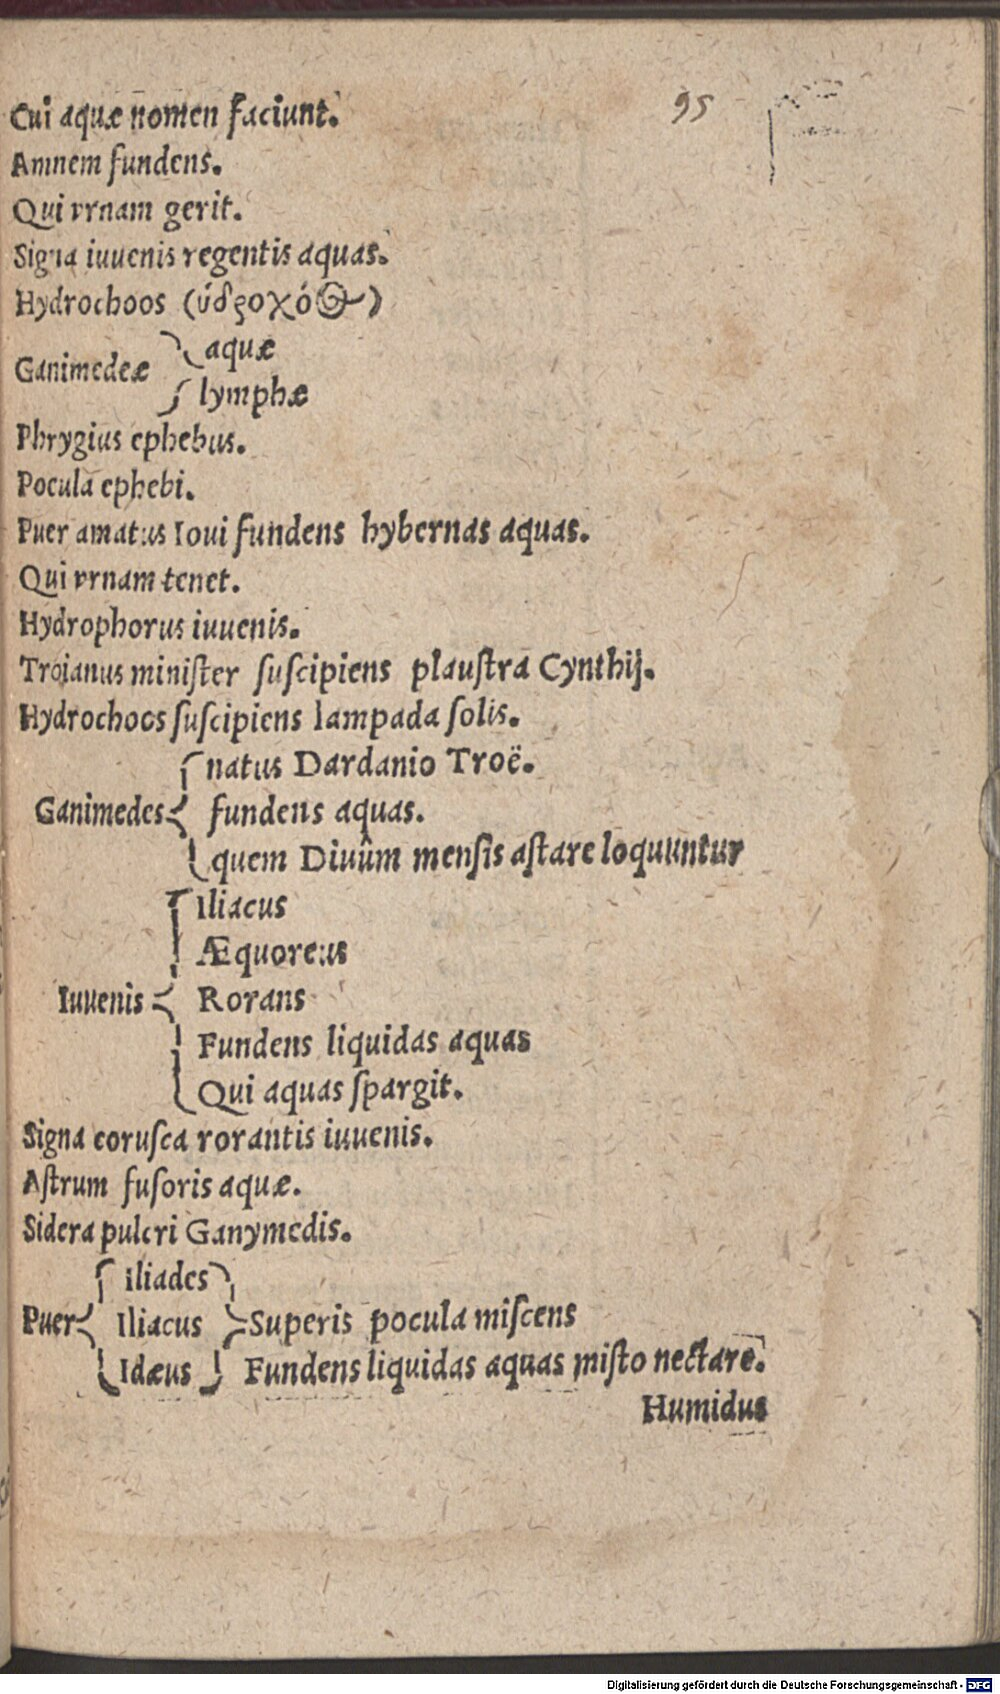 95
Cui aquæ nomen faciunt.
Amnem fundens.
Qui vrnam gerit.
Signa iuuenis regentis aquas.
Hydrochoos (ὑδροχόος)
Ganimedeæ { aquæ
lymphæ
Phrygius ephebus.
Pocula ephebi.
Puer amatus Ioui fundens hybernas aquas.
Qui vrnam tenet.
Hydrophorus iuuenis.
Troianus miniſter ſuſcipiens plauſtra Cynthij.
Hydrochoos ſuſcipiens lampada ſolis.
natus Dardanio Troë.
Ganimedes { fundens aquas.
quem Diuûm menſis aſtare loquuntur
Iliacus
Æquoreus
Iuuenis { Rorans
Fundens liquidas aquas
Qui aquas ſpargit.
Signa coruſca rorantis iuuenis.
Aſtrum fuſoris aquæ.
Sidera pulcri Ganymedis.
Iliades
Puer { Iliacus } Superis pocula miſcens
Idæus } Fundens liquidas aquas miſto nectare.
Humidus
Digitalisierung gefördert durch die Deutsche Forschungsgemeinschaft - DFG